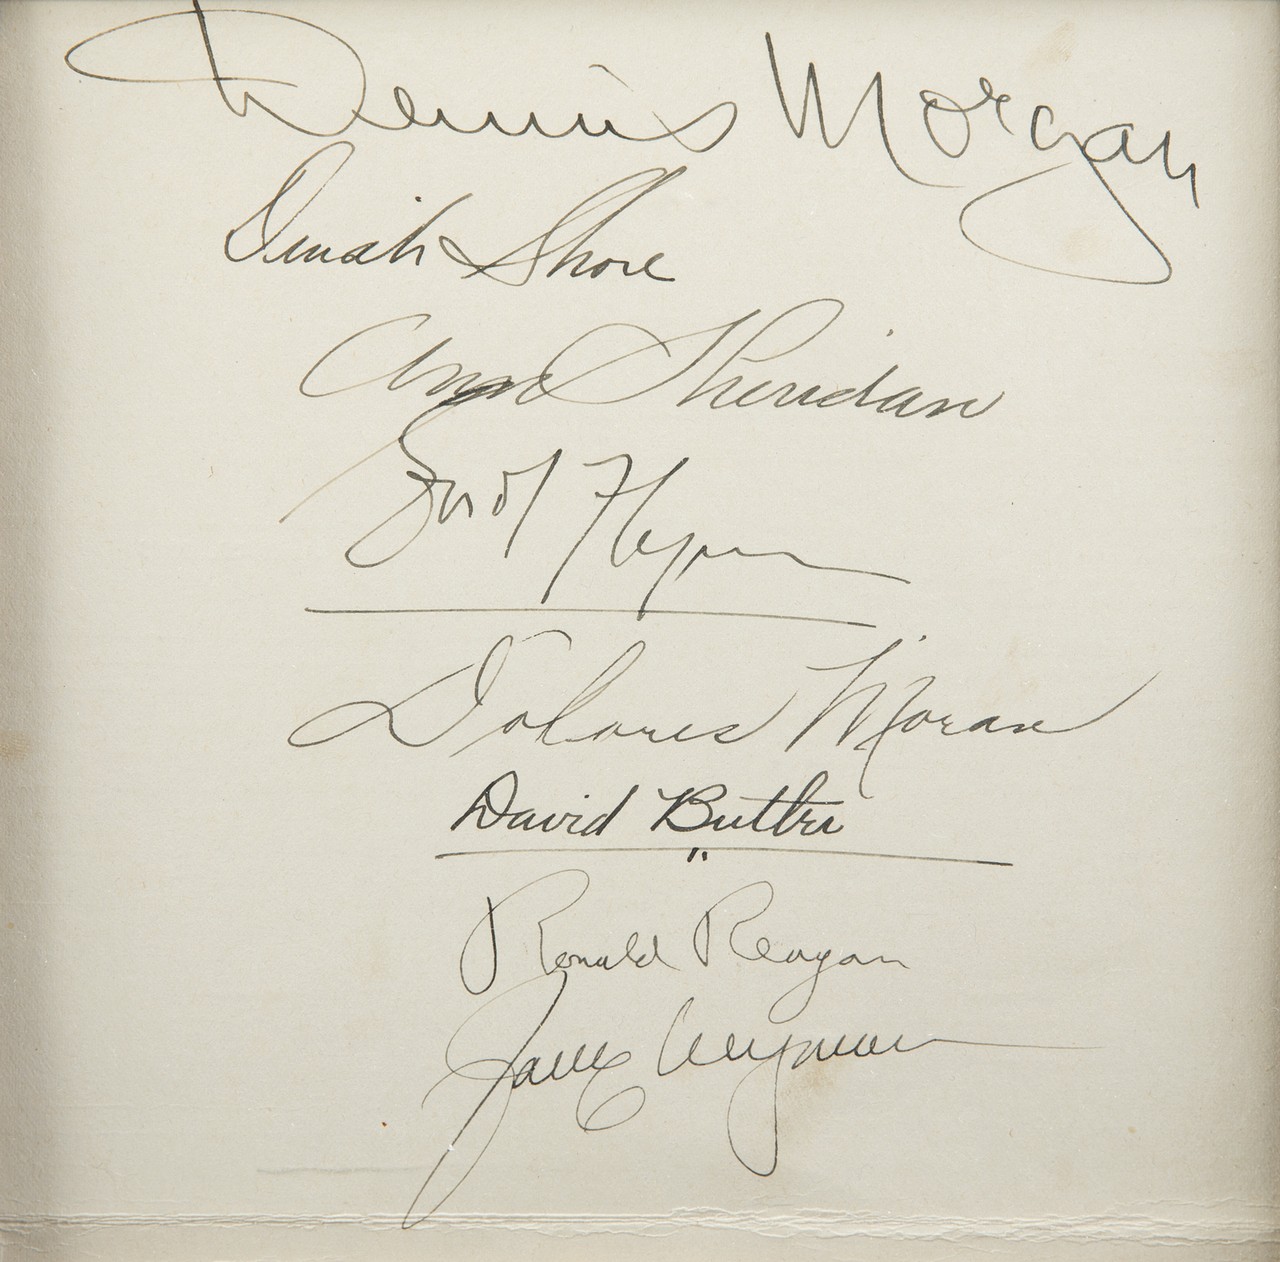 Dennis Morgan
Dinah Shore
Ann Sheridan
Errol Flynn
Dolores Moran
David Butler
"
Ronald Reagan
Jane Wyman